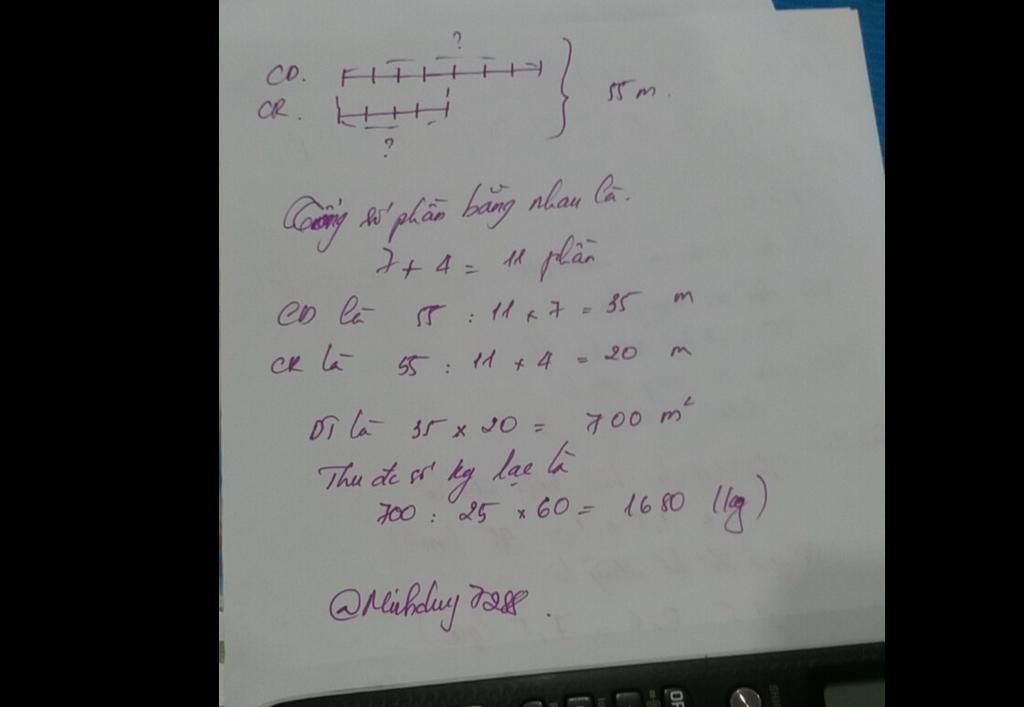 ?
CD.
CR.
55 m.
?
Tổng số phần bằng nhau là.
7 + 4 = 11 phần
CD là 55 : 11 x 7 = 35 m
CR là 55 : 11 x 4 = 20 m
DT là 35 x 20 = 700 m²
Thu đc số kg lạc là
700 : 25 x 60 = 1680 (kg)
@Minhduy7288.